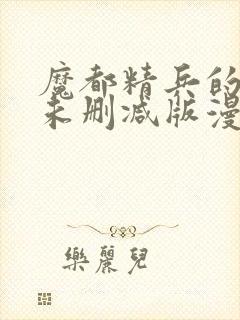 魔都精兵的
未删减版漫
樂麗兒